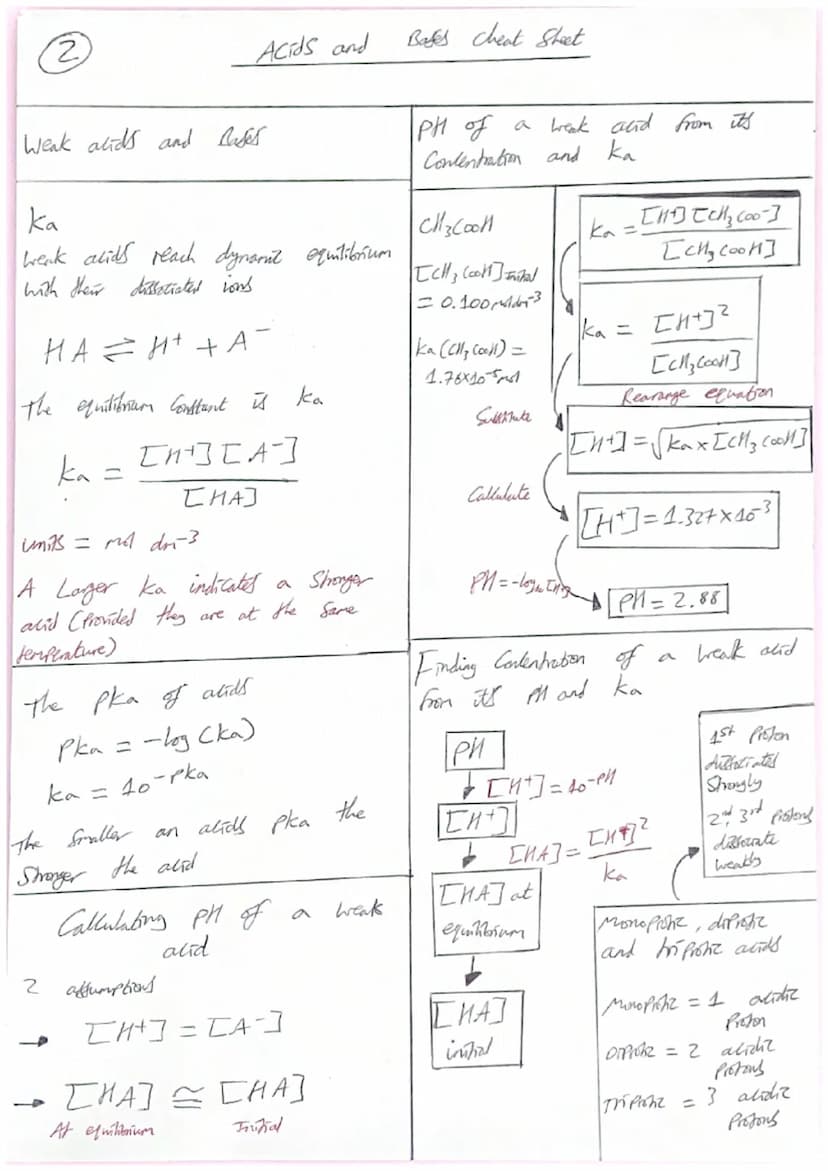 2
Acids and Bases Cheat Sheet
Weak acids and Bases
Ka
Weak acids reach dynamic equilibrium
with their dissociated ions
HA ⇌ H⁺ + A⁻
The equilibrium constant is Ka
Ka = [H+] [A⁻] / [HA]
units = mol dm⁻³
A Larger Ka indicates a Stronger
acid (Provided they are at the same
temperature)
The PKa of acids
PKa = -log (Ka)
Ka = 10⁻ᴾᴷᵃ
The smaller an acids PKa the
Stronger the acid
Calculating PH of a weak
acid
2 assumptions
→ [H+] = [A⁻]
→ [HA] ≅ [HA]
At equilibrium Initial
PH of a weak acid from its
Concentration and Ka
CH₃COOH
[CH₃COOH] Initial
= 0.100 mol dm⁻³
Ka (CH₃COOH) =
1.76×10⁻⁵ mol
Ka = [H+] [CH₃COO⁻] / [CH₃COOH]
Ka = [H+]² / [CH₃COOH]
Rearange equation
Substitute
[H+] = √Ka × [CH₃COOH]
Calculate
[H+] = 1.327 × 10⁻³
PH = -log₁₀[H+]
PH = 2.88
Finding Concentration of a weak acid
from its PH and Ka
PH
[H+] = 10⁻ᴾᴴ
[H+]
[HA] = [H+]² / Ka
[HA] at
equilibrium
[HA]
initial
1st Proton
dissociates
Strongly
2nd, 3rd Protons
dissociate
weakly
Monoprotic, diprotic
and triprotic acids
Monoprotic = 1 acidic
Proton
Diprotic = 2 acidic
Protons
Triprotic = 3 acidic
Protons